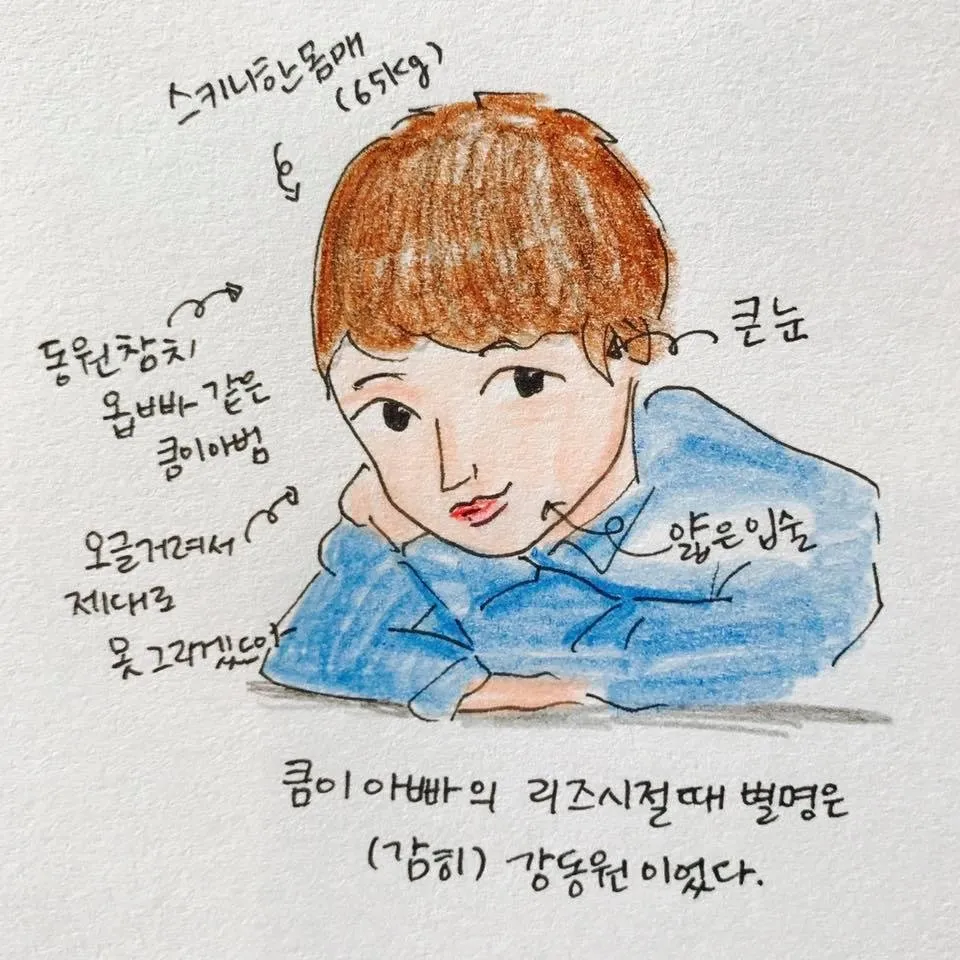 스키니한 몸매
(65kg)
큰 눈
동원참치
옵빠 같은
큼이아범
오글거려서
제대로
못 그리겠드아
얇은 입술
큼이 아빠의 리즈시절때 별명은
(감히) 강동원이었다.